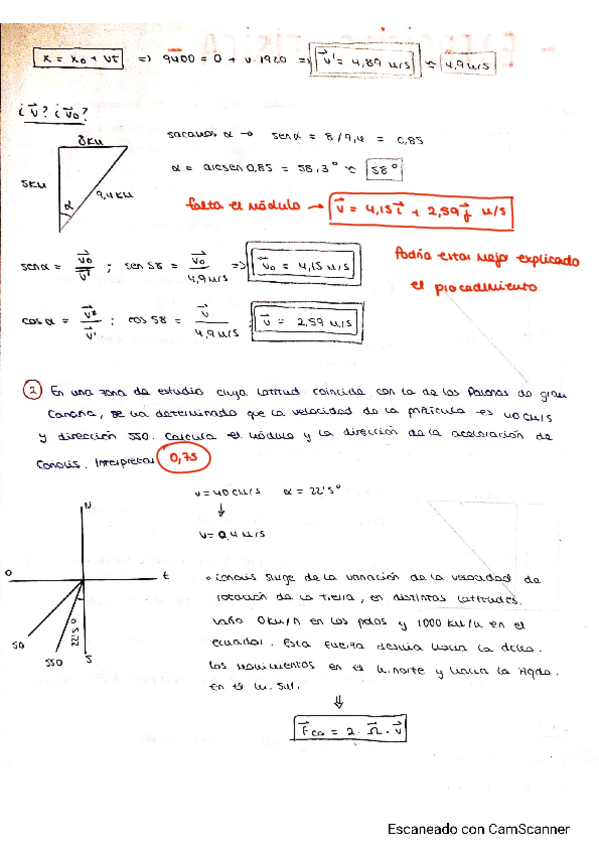 x = x₀ + vt => 9400 = 0 + v · 1920 => v⃗' = 4,89 m/s ≈ 4,9 m/s
¿v⃗? ¿v⃗₀?
8km
sacamos α → senα = 8/9,4 = 0,85
5km
9,4km
α
α = arcsen 0,85 = 58,3° ≈ 58°
falta el módulo → v⃗ = 4,15i⃗ + 2,59j⃗ m/s
senα = v⃗₀/v⃗' ; sen 58 = v⃗₀/4,9 m/s => v⃗₀ = 4,15 m/s
Podría estar mejor explicado
el procedimiento
cosα = v⃗/v⃗' ; cos 58 = v⃗/4,9 m/s v⃗ = 2,59 m/s
2 En una zona de estudio cuya latitud coincide con la de las Palmas de gran
Canaria, se ha determinado que la velocidad de la partícula es 40 cm/s
y dirección SSO. Calcula el módulo y la dirección de la aceleración de
Coriolis. Interpretar 0,75
v = 40 cm/s α = 22'5°
↓
v = 0,4 m/s
N
O
E
SO
SSO
22'5°
S
Coriolis surge de la variación de la velocidad de
rotación de la Tierra, en distintas latitudes.
0 km/h en los polos y 1000 km/h en el
ecuador. Esta fuerza desvía hacia la dcha.
los movimientos en el h. norte y hacia la izqda.
en el h. sur.
⇓
F⃗co = 2 · Ω⃗ · v⃗
Escaneado con CamScanner